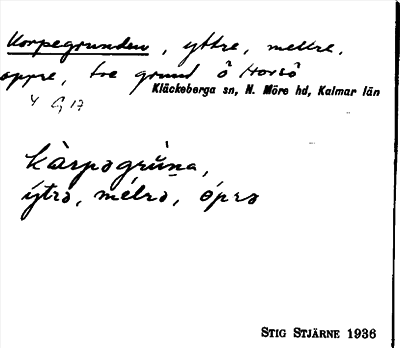 Korpegrunden, yttre, mellre,
oppre, tre grund ö Horsö
Kläckeberga sn, N. Möre hd, Kalmar län
4 G 17
kàrpəgrùna,
ýtrə, mélrə, óprə
STIG STJÄRNE 1936